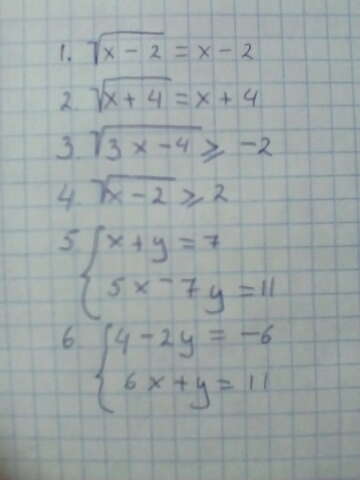 1. √(x - 2) = x - 2
2. √(x + 4) = x + 4
3. √(3x - 4) ≥ -2
4. √(x - 2) ≥ 2
5 { x + y = 7
5x - 7y = 11
6. { 4 - 2y = -6
6x + y = 11